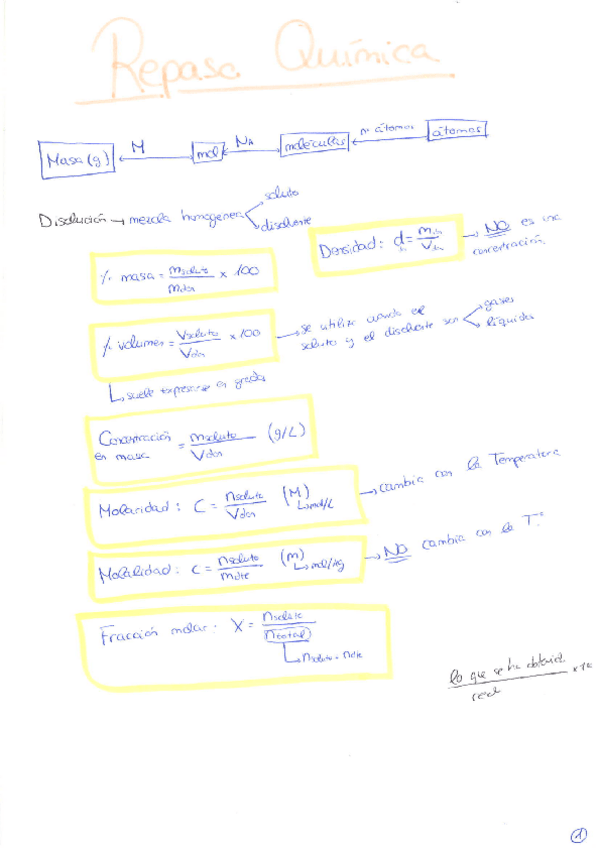 Repaso Química
Masa (g) M mol NA moléculas nº átomos átomos
Disolución → mezcla homogenea soluto
disolvente
Densidad: d = m / V → NO es una
concentración
% masa = msoluto / mdon x 100
% volumen = Vsoluto / Vdon x 100 → se utiliza cuando el
soluto y el disolvente son gases
líquidos
suele expresarse en grados
Concentración
en masa = msoluto / Vdon (g/L)
Molaridad: C = nsoluto / Vdon (M) → cambia con la Temperatura
mol/L
Molalidad: C = nsoluto / mdte (m) → NO cambia con la Tª
mol/kg
Fracción molar: X = nsoluto / ntotal
nsoluto + ndte
lo que se ha obtenido
x 100
1